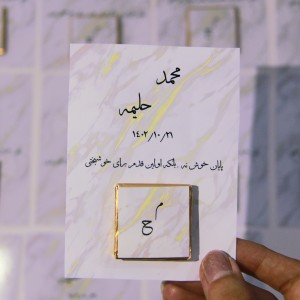 محمد
حلیمه
۱۴۰۲/۱۰/۲۱
پایان خوش نه .. بلکه اولین قدم برای خوشبختی
م
ح